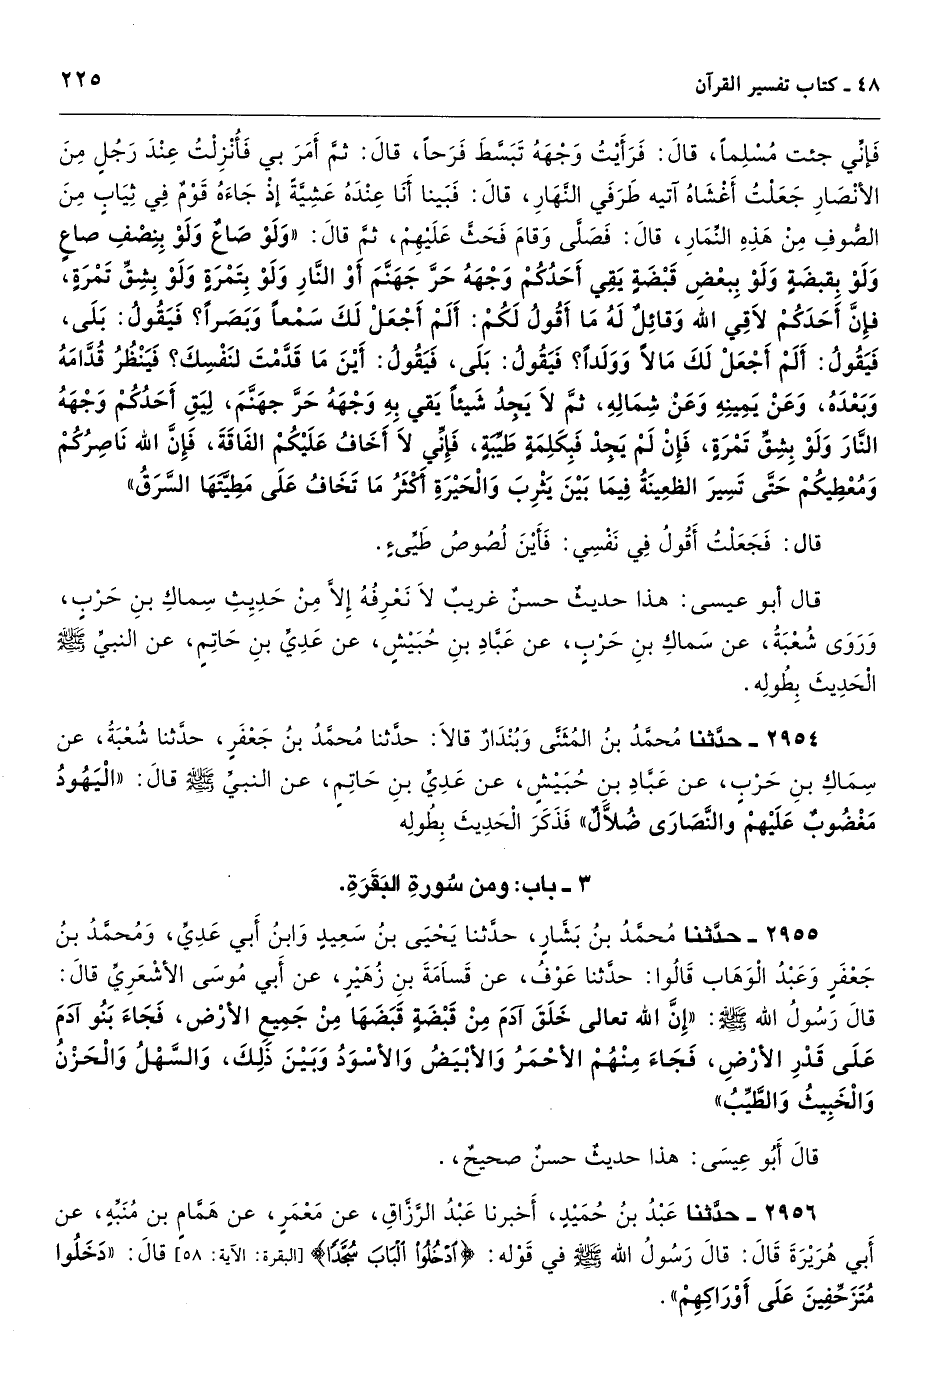 ٤٨ ـ كتاب تفسير القرآن
٢٢٥
فَإنِّي جئت مُسْلِماً، قالَ: فَرَأَيْتُ وَجْهَهُ تَبَسَّط فَرَحاً، قالَ: ثمَّ أَمَرَ بي فَأُنزِلْتُ عِنْدَ رَجُلٍ مِنَ
الأنْصَارِ جَعَلْتُ أغْشَاهُ آتيه طَرَفَي النَّهَارِ، قالَ: فَبَينا أنَا عِنْدَهُ عَشِيَّةً إذْ جَاءَهُ قَوْمٌ فِي ثِيَابٍ مِنَ
الصُّوفِ مِنْ هَذِهِ النِّمَارِ، قالَ: فَصَلَّى وَقامَ فَحَثَّ عَلَيْهِمْ، ثمَّ قالَ: «وَلَوْ صَاعٌ وَلَوْ بِنِصْفِ صاعٍ
وَلَوْ بِقبضَةٍ وَلَوْ بِبعْضِ قَبْضَةٍ يَقِي أَحَدُكُمْ وَجْهَهُ حَرَّ جَهَنَّمَ أَوْ النَّارِ وَلَوْ بِتَمْرَةٍ وَلَوْ بِشِقِّ تَمْرَةٍ،
فإنَّ أحَدَكُمْ لاَقِي الله وَقائِلٌ لَهُ مَا أَقُولُ لَكُمْ: أَلَمْ أَجْعَلْ لَكَ سَمْعاً وَبَصَراً؟ فَيَقُولُ: بَلَى،
فَيَقُولُ: أَلَمْ أَجْعَلْ لَكَ مَالاً وَوَلَداً؟ فَيَقُولُ: بَلَى، فَيَقُولُ: أَيْنَ مَا قَدَّمْتَ لنَفْسِكَ؟ فَيَنْظُرُ قُدَّامَهُ
وَبَعْدَهُ، وَعَنْ يَمِينِهِ وَعَنْ شِمَالِهِ، ثمَّ لاَ يَجِدُ شَيئاً يَقي بِهِ وَجْهَهُ حَرَّ جهَنَّمَ، لِيَقِ أَحَدُكُمْ وَجْهَهُ
النَّارَ وَلَوْ بِشِقِّ تَمْرَةٍ، فَإنْ لَمْ يَجِدْ فَبِكَلِمَةٍ طَيِّبَةٍ، فَإنِّي لاَ أَخَافُ عَلَيْكُمْ الفَاقَةَ، فَإنَّ الله نَاصِرُكُمْ
وَمُعْطِيكُمْ حَتَّى تَسِيرَ الظعِينَةُ فِيمَا بَيْنَ يَثْرِبَ وَالْحَيْرَةِ أَكْثَرُ مَا تَخَافُ عَلَى مَطِيَّتَهَا السَّرَقُ»
قال: فَجَعَلْتُ أَقُولُ فِي نَفْسِي: فَأَيْنَ لُصُوصُ طَيِّىءٍ.
قال أبو عيسى: هذا حديثٌ حسنٌ غريبٌ لاَ نَعْرِفُهُ إلاَّ مِنْ حَدِيثِ سِماكِ بنِ حَرْبٍ،
وَرَوَى شُعْبَةُ، عن سَماكِ بنِ حَرْبٍ، عن عَبَّادِ بنِ حُبَيْشٍ، عن عَدِيِّ بنِ حَاتِمٍ، عن النبيِّ ﷺ
الْحَدِيثَ بِطُولِهِ.
٢٩٥٤ ـ حدَّثنا مُحمَّدُ بنُ المُثَنَّى وَبُنْدَارٌ قالاَ: حدَّثنا مُحمَّدُ بنُ جَعْفَرٍ، حدَّثنا شُعْبَةُ، عن
سِمَاكِ بنِ حَرْبٍ، عن عَبَّادِ بنِ حُبَيْشٍ، عن عَدِيِّ بنِ حَاتِمٍ، عن النبيِّ ﷺ قالَ: «الْيَهُودُ
مَغْضُوبٌ عَلَيْهِمْ والنَّصَارَى ضُلاَّلٌ» فَذَكَرَ الْحَدِيثَ بِطُولِهِ
٣ ـ باب: ومن سُورةِ البَقَرَةِ.
٢٩٥٥ ـ حدَّثنا مُحمَّدُ بنُ بَشَّارٍ، حدَّثنا يَحْيَى بنُ سَعِيدٍ وَابنُ أَبي عَدِيٍّ، وَمُحمَّدُ بنُ
جَعْفَرٍ وَعَبْدُ الْوَهَاب قَالُوا: حدَّثنا عَوْفٌ، عن قَسَامَةَ بنِ زُهَيْرٍ، عن أَبي مُوسَى الأشْعَرِيِّ قالَ:
قالَ رَسُولُ الله ﷺ: «إنَّ الله تعالى خَلَقَ آدَمَ مِنْ قَبْضَةٍ قَبَضَهَا مِنْ جَمِيعِ الأرْضِ، فَجَاءَ بَنُو آدَمَ
عَلَى قَدْرِ الأرْضِ، فَجَاءَ مِنْهُمْ الأحْمَرُ وَالأبْيَضُ وَالأسْوَدُ وَبَيْنَ ذَلِكَ، وَالسَّهْلُ وَالْحَزْنُ
وَالْخَبِيثُ وَالطَّيِّبُ»
قالَ أَبُو عِيسَى: هذا حديثٌ حسنٌ صحيحٌ،.
٢٩٥٦ ـ حدَّثنا عَبْدُ بنُ حُمَيْدٍ، أخبرنا عَبْدُ الرَّزَّاقِ، عن مَعْمَرٍ، عن هَمَّامِ بن مُنَبِّهٍ، عن
أَبي هُرَيْرَةَ قَالَ: قالَ رَسُولُ الله ﷺ في قَوْله: ﴿ٱدْخُلُوا۟ ٱلْبَابَ سُجَّدًا﴾ [البقرة: الآية: ٥٨] قالَ: «دَخَلُوا
مُتَزَحِّفِينَ عَلَى أَوْرَاكِهِمْ».